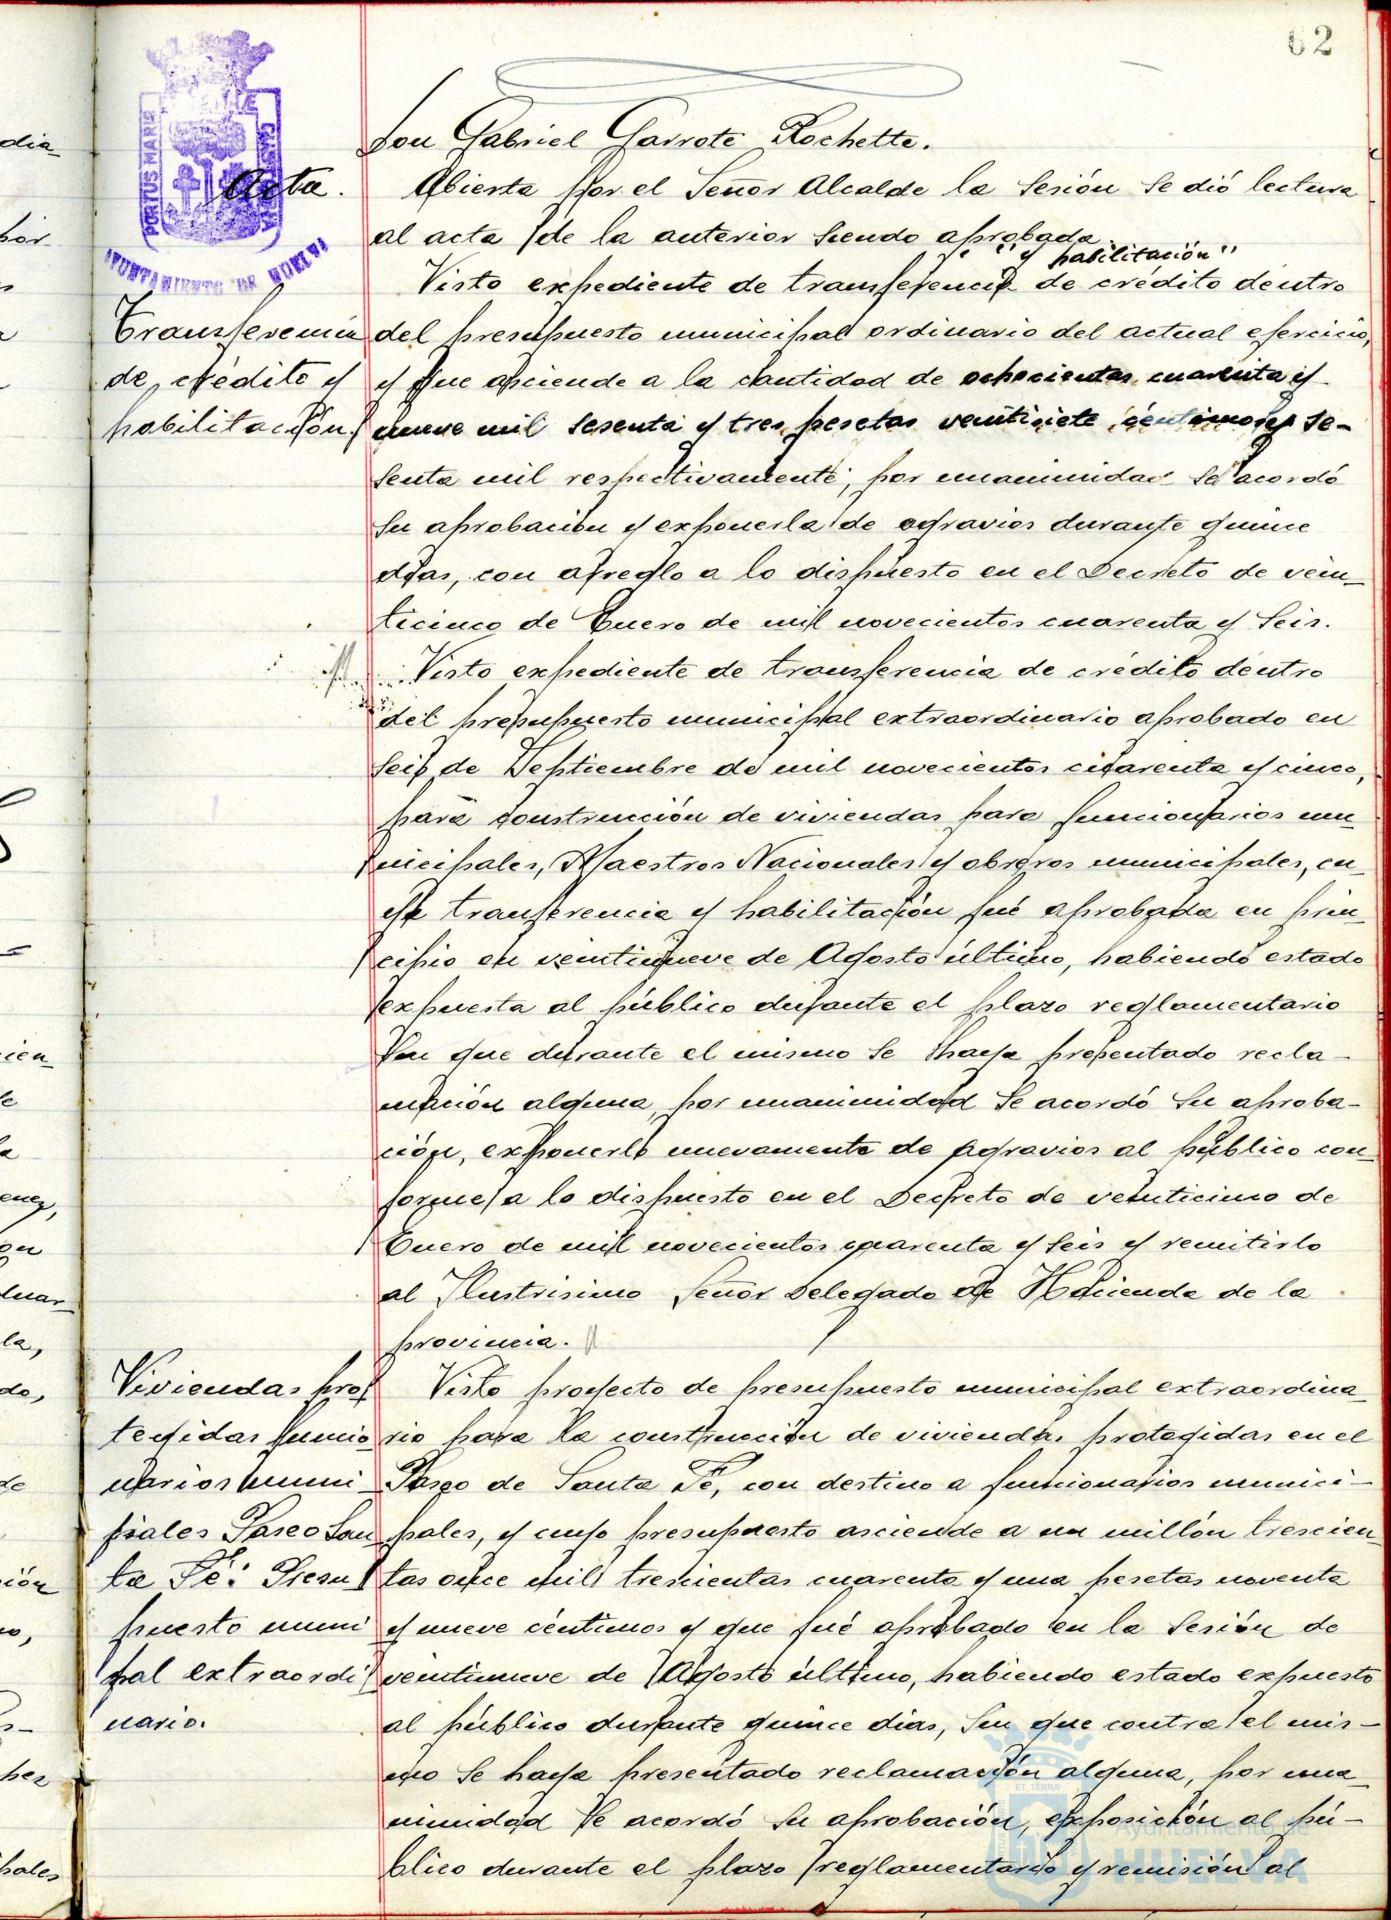 62
PORTUS MARIS
AYUNTAMIENTO DE HUELVA
Don Gabriel Garrote Rochette.
Acta.
Abierta por el Señor Alcalde la Sesión se dió lectura
al acta de la anterior siendo aprobada.
"y habilitación"
Visto expediente de transferencia de crédito dentro
Transferencia
de crédito y
habilitación.
del presupuesto municipal ordinario del actual ejercicio,
y que asciende a la cantidad de ochocientas cuarenta y
nueve mil sesenta y tres pesetas veintisiete céntimos y se-
senta mil respectivamente; por unanimidad se acordó
su aprobación y exponerla de agravios durante quince
días, con arreglo a lo dispuesto en el Decreto de vein-
ticinco de Enero de mil novecientos cuarenta y seis.
Visto expediente de transferencia de crédito dentro
del presupuesto municipal extraordinario aprobado en
seis de Septiembre de mil novecientos cuarenta y cinco,
para construcción de viviendas para funcionarios mu-
nicipales, Maestros Nacionales y obreros municipales, cu-
ya transferencia y habilitación fué aprobada en prin-
cipio en veintinueve de Agosto último, habiendo estado
expuesta al público durante el plazo reglamentario
sin que durante el mismo se haya presentado recla-
mación alguna, por unanimidad se acordó su aproba-
ción, exponerlo nuevamente de agravios al público con-
forme a lo dispuesto en el Decreto de veinticinco de
Enero de mil novecientos cuarenta y seis y remitirlo
al Ilustrisimo Señor Delegado de Hacienda de la
provincia.
Viviendas pro-
tegidas funcio-
narios muni-
pales Paseo San-
ta Fé: Presu-
puesto muni
pal extraordi-
nario.
Visto proyecto de presupuesto municipal extraordina-
rio para la construcción de viviendas protegidas en el
Paseo de Santa Fé, con destino a funcionarios munici-
pales, y cuyo presupuesto asciende a un millón trescien-
tas once mil trescientas cuarenta y una pesetas noventa
y nueve céntimos y que fué aprobado en la Sesión de
veintinueve de Agosto último, habiendo estado expuesto
al público durante quince días, sin que contra el mis-
mo se haya presentado reclamación alguna, por una-
nimidad se acordó su aprobación, exposición al pú-
blico durante el plazo reglamentario y remisión al
Ayuntamiento de
HUELVA